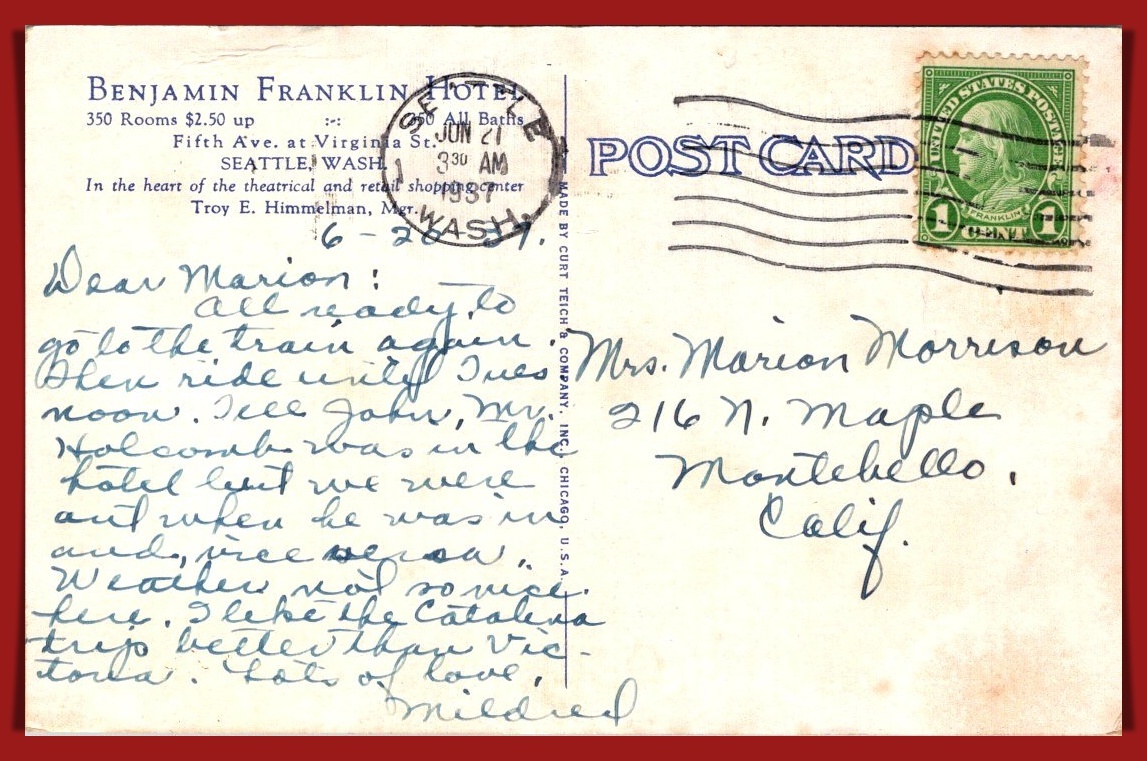 BENJAMIN FRANKLIN HOTEL
350 Rooms $2.50 up :-: 350 All Baths
Fifth Ave. at Virginia St.
SEATTLE, WASH.
In the heart of the theatrical and retail shopping center
Troy E. Himmelman, Mgr.
SEATTLE
JUN 21
3 30 AM
1937
WASH.
1
6-20-37.
Dear Marion:
All ready to
go to the train again.
Then ride until Tues
noon. Tell John, Mr.
Holcomb was in the
hotel but we were
out when he was in
and, vice versa.
Weather not so nice
here. I like the Catalina
trip better than Vic-
toria. Lots of love,
Mildred
MADE BY CURT TEICH & COMPANY, INC., CHICAGO, U.S.A.
POST CARD
UNITED STATES POSTAGE
FRANKLIN
1 CENT 1
Mrs. Marion Morrison
216 N. Maple
Montebello,
Calif.